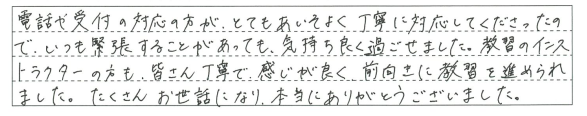 電話や受付の対応の方が、とてもあいそよく丁寧に対応してくださったの
で、いつも緊張することがあっても、気持ち良く過ごせました。教習のインス
トラクターの方も、皆さん丁寧で、感じが良く、前向きに教習を進められ
ました。たくさんお世話になり、本当にありがとうございました。